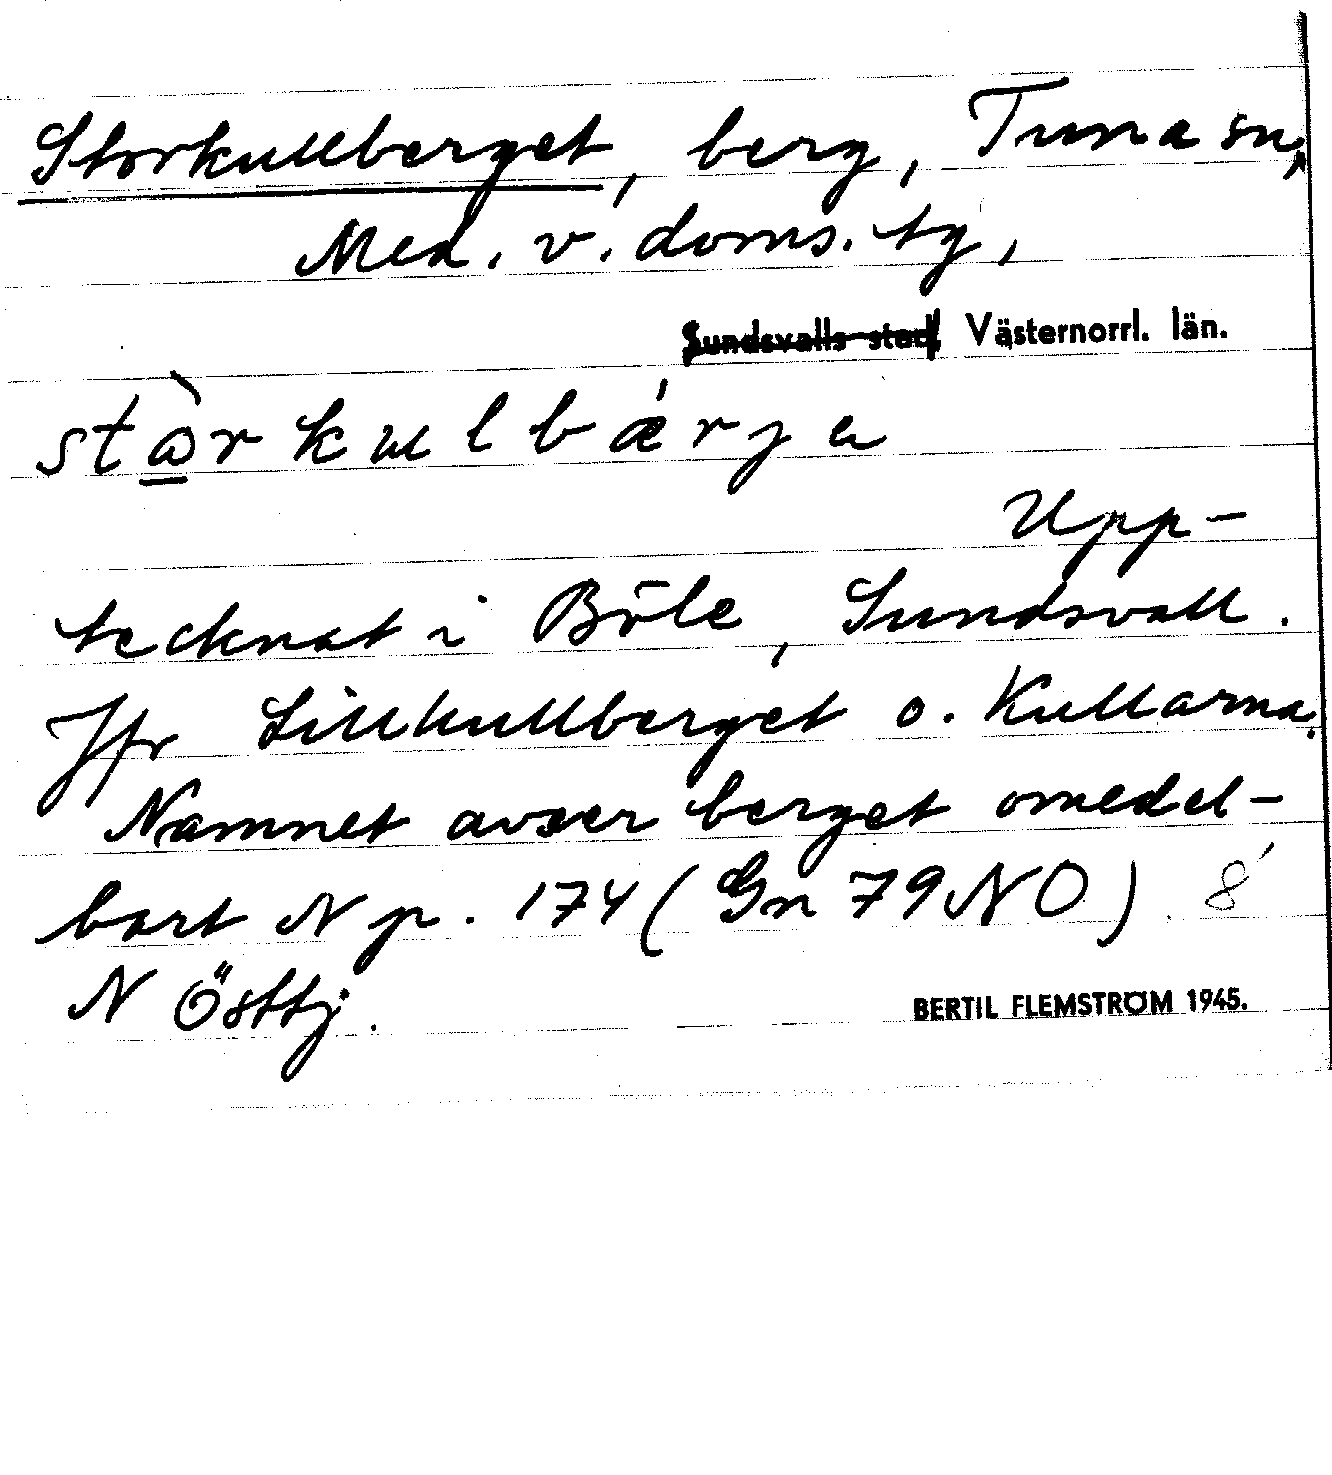 Storkullberget, berg, Tuna sn,
Med. v. doms. tg,
Sundsvalls stad, Västernorrl. län.
stòrkulbǽrja
Upp-
tecknat i Böle, Sundsvall.
Jfr Lillkullberget o. Kullarna.
Namnet avser berget omedel-
bart N p. 174 (Gn 79 NO) 8'
N Östtj.
BERTIL FLEMSTRÖM 1945.